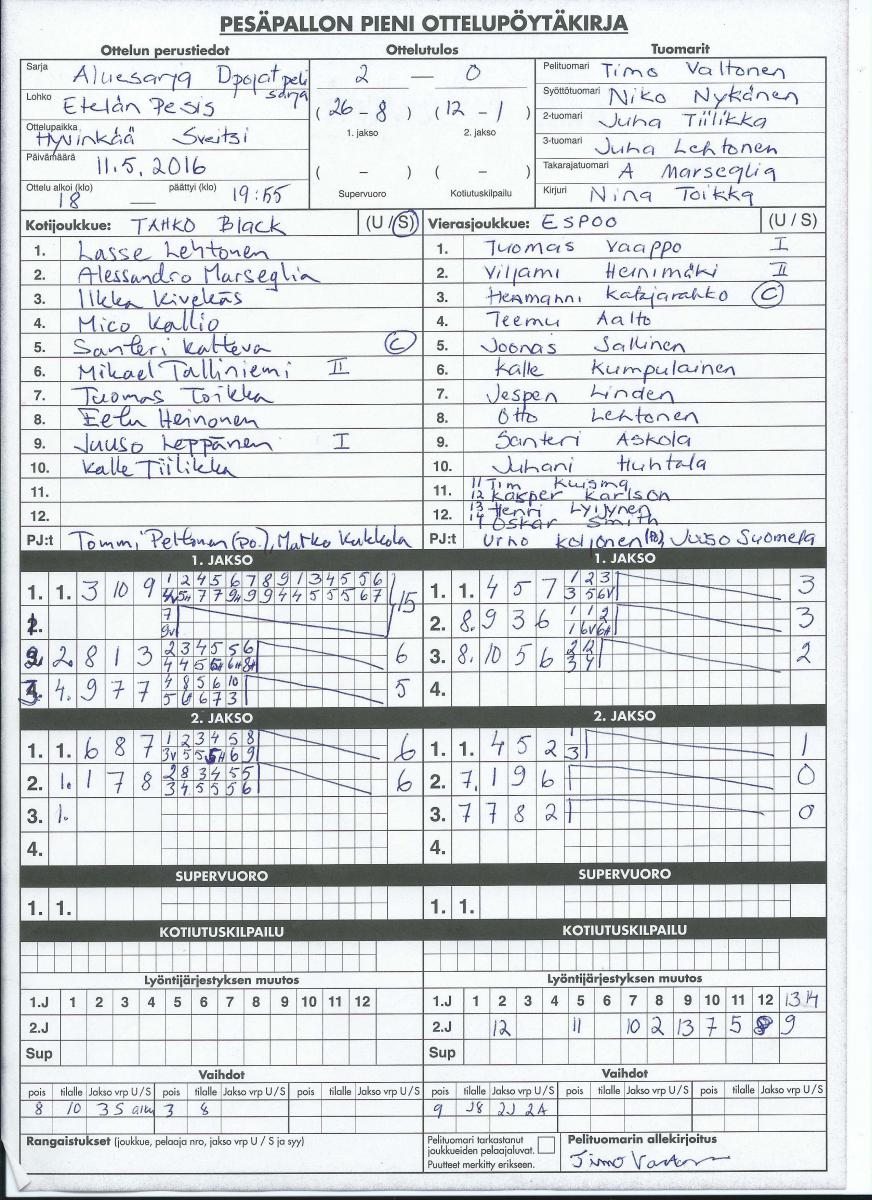 PESÄPALLON PIENI OTTELUPÖYTÄKIRJA
Ottelun perustiedot
Ottelutulos
Tuomarit
Sarja Aluesarja Dpojat peli sarja
2 — 0
Pelituomari Timo Valtonen
Lohko Etelän Pesis
(26-8) (12-1)
1. jakso 2. jakso
Syöttötuomari Niko Nykänen
Ottelupaikka Hyvinkää Sveitsi
2-tuomari Juha Tiilikka
Päivämäärä 11.5.2016
3-tuomari Juha Lehtonen
( - ) ( - )
Takarajatuomari A Marseglia
Ottelu alkoi (klo) päättyi (klo)
18 — 19:55
Supervuoro Kotiutuskilpailu
Kirjuri Nina Toikka
Kotijoukkue: TAHKO Black (U / S)
Vierasjoukkue: ESPOO (U / S)
1. Lasse Lehtonen
2. Alessandro Marseglia
3. Ilkka Kivekäs
4. Mico Kallio
5. Santeri Katteva C
6. Mikael Talliniemi II
7. Tuomas Toikka
8. Eetu Heinonen
9. Juuso Leppänen I
10. Kalle Tiilikka
11.
12.
PJ:t Tommi Peltonen (po.), Marko Kukkola
1. Tuomas Vaappo I
2. Viljami Heinimäki II
3. Hermanni Katajarahko C
4. Teemu Aalto
5. Joonas Sallinen
6. Kalle Kumpulainen
7. Jesper Linden
8. Otto Lehtonen
9. Santeri Askola
10. Juhani Huhtala
11. 11 Tim Kuisma
12 Kasper Karlson
12. 13 Henri Lyijynen
14 Oskar Smith
PJ:t Urho Koljonen Juuso Suomela
1. JAKSO
1. 1. 3 10 9
1 2 4 5 6 7 8 9 1 3 4 5 5 6
15
2.
7
9v
2. 8 1 3
2 3 4 5 5 6
6
4. 9 7 7
4 8 5 6 10
5 6 6 7 3
5
1. JAKSO
1. 1. 4 5 7
1 2 3
3 5 6V
3
2. 8. 9 3 6
1 1 2
1 6v 6H
3
3. 8. 10 5 6
2
4.
2. JAKSO
1. 1. 6 8 7
1 2 3 4 5 8
6
2. 1. 1 7 8
2 8 3 4 5 5
3 4 5 5 5 6
6
3. 1.
4.
2. JAKSO
1. 1. 4 5 2
1
3
1
2. 7. 1 9 6
0
3. 7 7 8 2
0
4.
SUPERVUORO
1. 1.
SUPERVUORO
1. 1.
KOTIUTUSKILPAILU
KOTIUTUSKILPAILU
Lyöntijärjestyksen muutos
1.J 1 2 3 4 5 6 7 8 9 10 11 12
2.J
Sup
Lyöntijärjestyksen muutos
1.J 1 2 3 4 5 6 7 8 9 10 11 12 13 14
2.J 12 11 10 2 13 7 5 9
Sup
Vaihdot
pois tilalle Jakso vrp U / S pois tilalle Jakso vrp U / S pois tilalle Jakso vrp U / S
8 10 3S alku 3 8
Vaihdot
pois tilalle Jakso vrp U / S pois tilalle Jakso vrp U / S pois tilalle Jakso vrp U / S
9 J8 2J 2A
Rangaistukset (joukkue, pelaaja nro, jakso vrp U / S ja syy)
Pelituomari tarkastanut
joukkueiden pelaajaluvat.
Puutteet merkitty erikseen.
Pelituomarin allekirjoitus
Timo